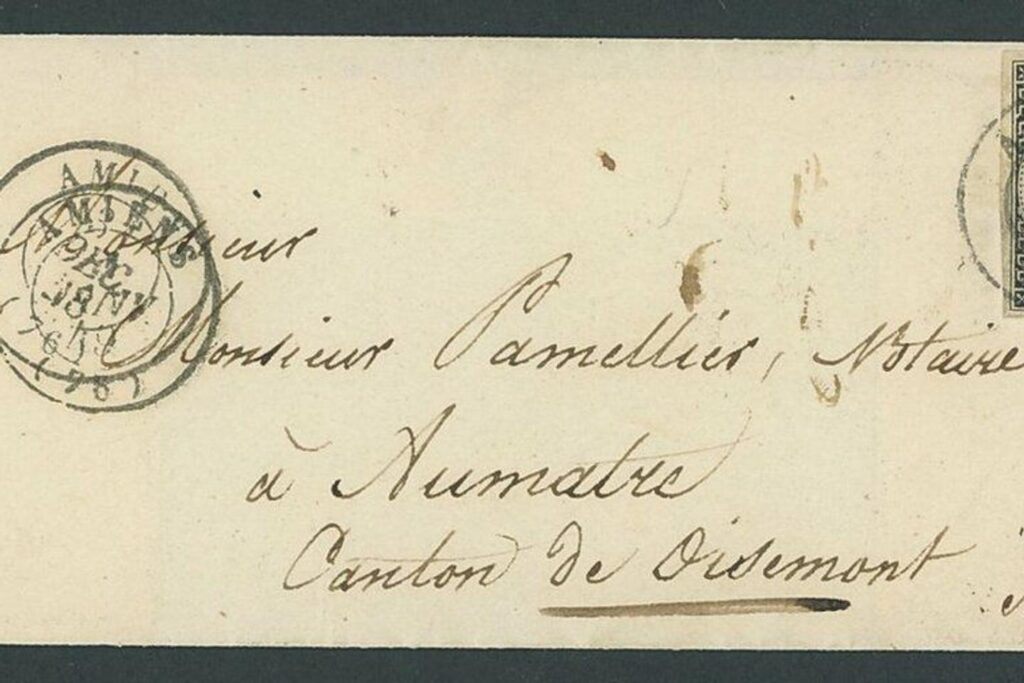 AMIENS
(76)
Monsieur
Monsieur Pamellier, Notaire
à Aumatre
Canton de Oisemont